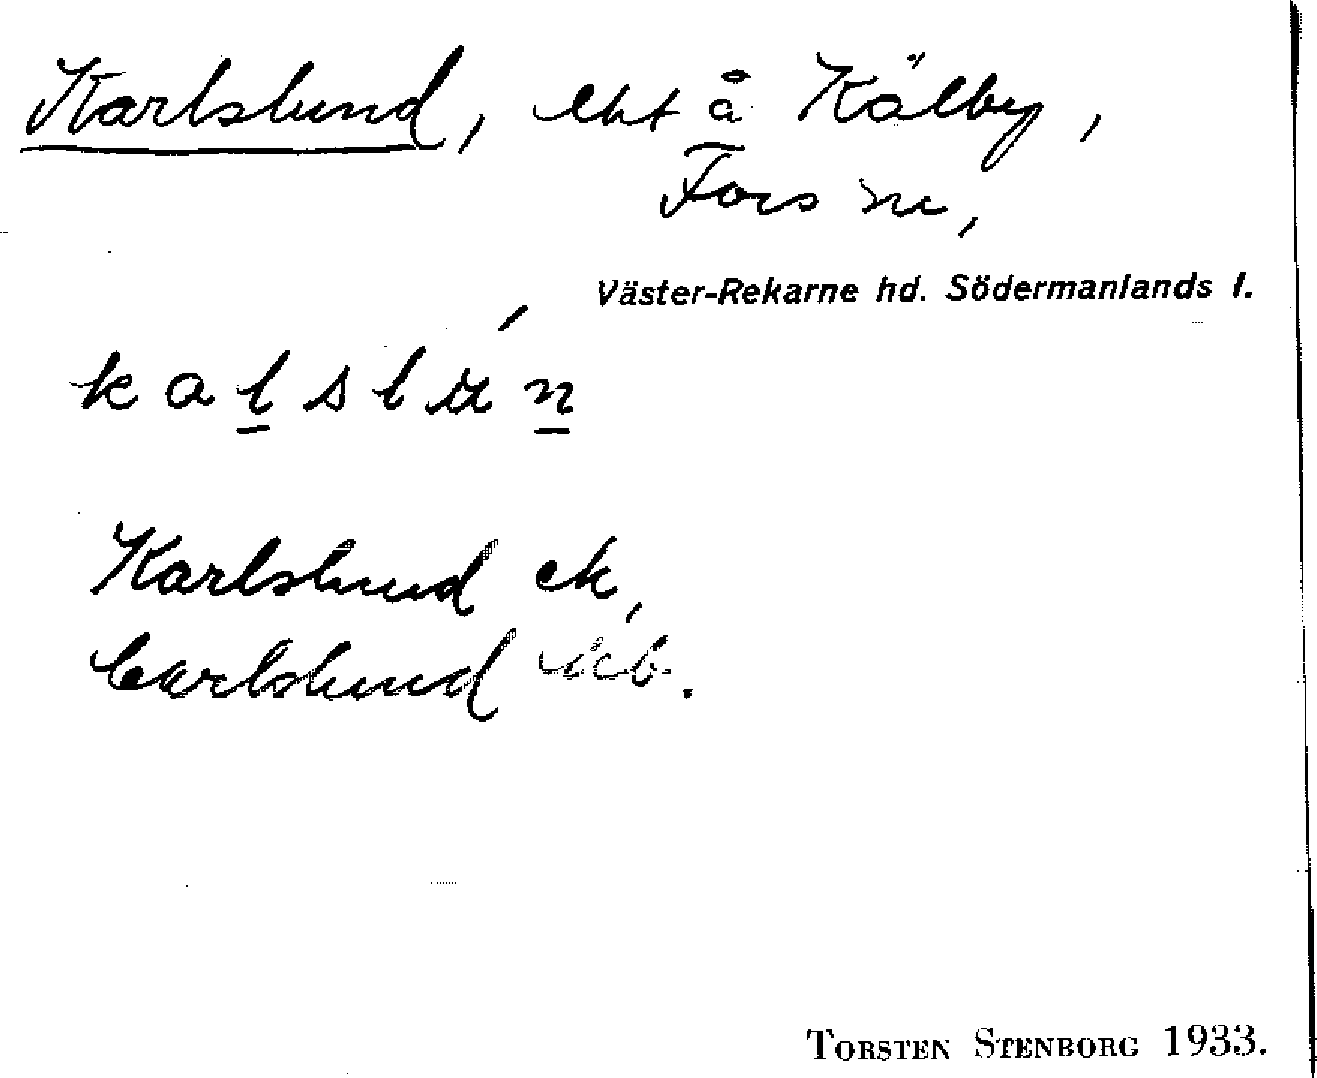 Karlslund, lht å Kälby,
Fors sn,
Väster-Rekarne hd. Södermanlands l.
kalslun
Karlslund ek,
Carlslund
TORSTEN STENBORG 1933.